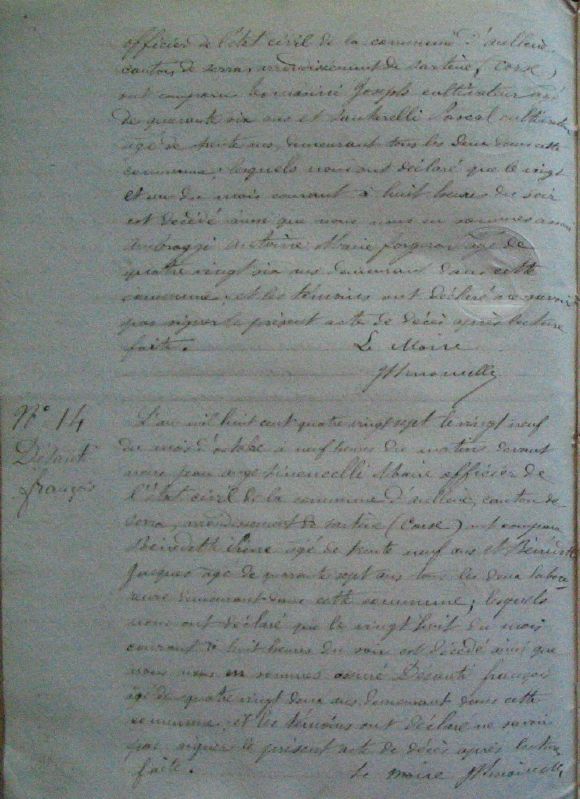 officier de l'état civil de la commune d'aullene,
canton de serra, arrondissement de sartène, (Corse)
ont comparu Joseph cultivateur agé
de quarante six ans et Pascal cultivateur
agé de trente ans, demeurant tous les deux dans cette
commune, lesquels nous ont déclaré que le vingt
et un du mois courant à huit heures du soir
est décédé ainsi que nous nous en sommes assuré
antoine Marie agé de
quatre vingt six ans demeurant dans cette
commune, et les témoins ont déclaré ne savoir
pas signer le présent acte de décès après lecture
faite.
Le Maire
N° 14
Désanti
françois
L'an mil huit cent quatre vingt sept le vingt neuf
du mois d'octobre à neuf heures du matin devant
nous jean ange Maire officier de
l'état civil de la commune d'aullene, canton de
serra, arrondissement de sartène (Corse) ont comparu
agé de trente neuf ans et
Jacques agé de quarante sept ans tous les deux laboureurs
demeurant dans cette commune; lesquels
nous ont déclaré que le vingt huit du mois
courant à huit heures du soir est décédé ainsi que
nous nous en sommes assuré Désanti françois
agé de quatre vingt deux ans demeurant dans cette
commune et les témoins ont déclaré ne savoir
pas signer le présent acte de décès après lecture
faite. Le maire